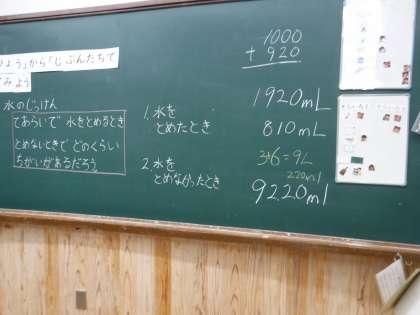 ひょう」から「じぶんたちで
みよう
水のじっけん
てあらいで 水をとめるとき
とめないときで どのくらい
ちがいがあるだろう
1. 水を
とめたとき
2. 水を
とめなかったとき
1000
+ 920
1920mL
810mL
3+6=9L
220ml
9220ml